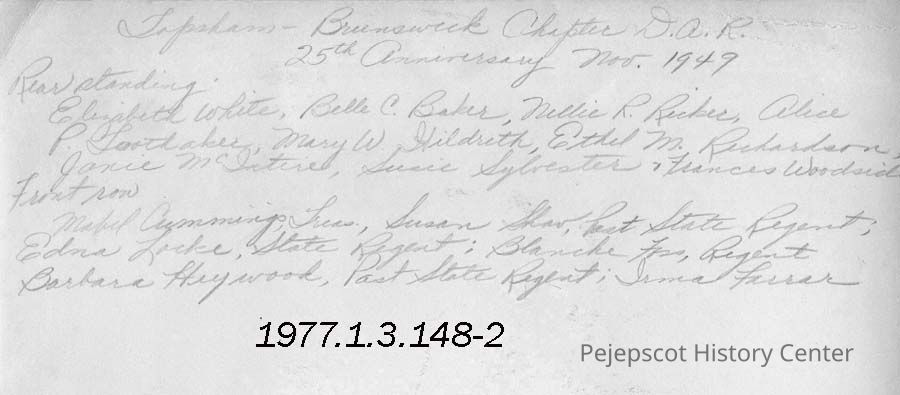 Topsham - Brunswick Chapter D.A.R.
25th Anniversary Nov. 1949
Rear standing.
Elizabeth White, Belle C. Baker, Nellie R. Ricker, Alice
P. Toothaker, Mary W. Hildreth, Ethel M. Richardson,
Janie McIntire, Susie Sylvester & Frances Woodside
Front row
Mabel Cummings, Treas., Susan Shaw, Past State Regent;
Edna Locke, State Regent; Blanche Foss, Regent
Barbara Heywood, Past State Regent; Irma Farrar
1977.1.3.148-2
Pejepscot History Center